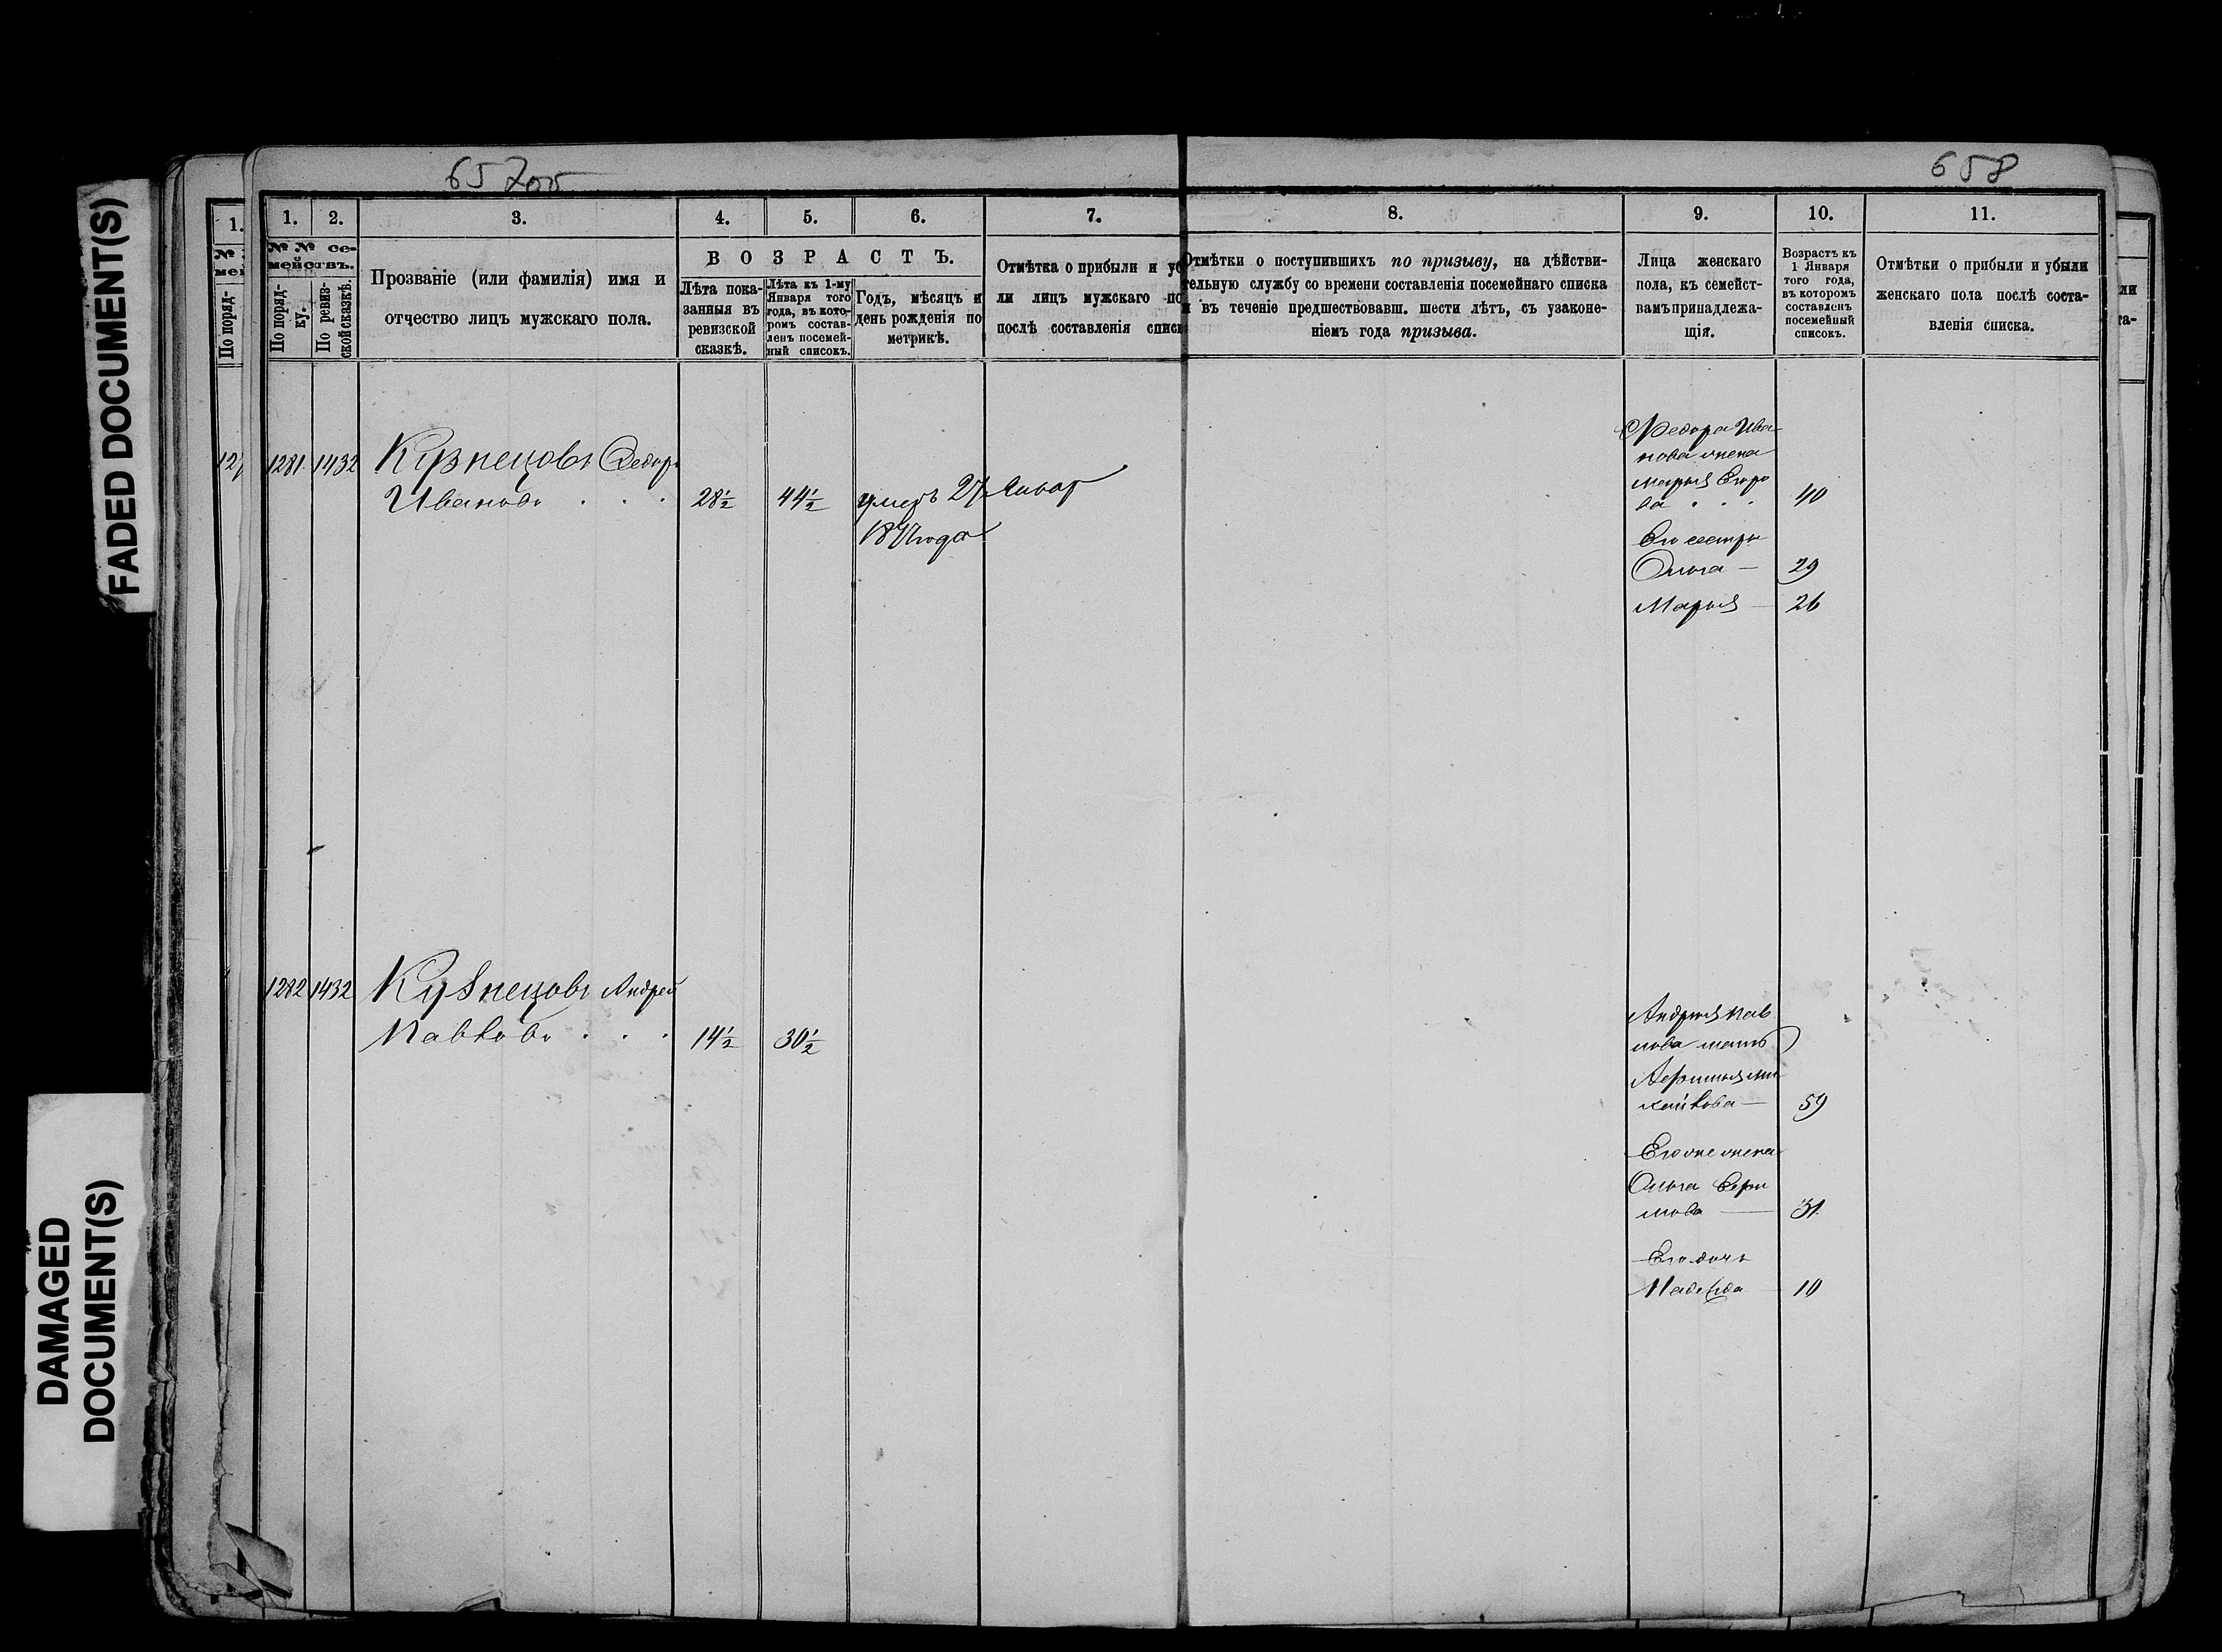 FADED DOCUMENT(S)
DAMAGED
DOCUMENT(S)
657об
658
1.
1. 2. 3. 4. 5. 6. 7. 8. 9. 10. 11.
№ № се-
мействъ.
По поряд-
ку.
По ревиз-
ской сказкѣ.
Прозваніе (или фамилія) имя и
отчество лицъ мужскаго пола.
ВОЗРАСТЪ.
Лѣта пока-
занныя въ
ревизской
сказкѣ.
Лѣта къ 1-му
Января того
года, въ кото-
ромъ состав-
ленъ посемей-
ный списокъ.
Годъ, мѣсяцъ и
день рожденія по
метрикѣ.
Отмѣтка о прибыли и уб
ли лицъ мужскаго по
послѣ составленія списк
Отмѣтки о поступившихъ по призыву, на дѣйстви-
тельную службу со времени составленія посемейнаго списка
и въ теченіе предшествовавш. шести лѣтъ, съ узаконе-
ніемъ года призыва.
Лица женскаго
пола, къ семейст-
вамъ принадлежа-
щія.
Возрастъ къ
1 Января
того года,
въ которомъ
составленъ
посемейный
списокъ.
Отмѣтки о прибыли и убыли
женскаго пола послѣ соста-
вленія списка.
По поряд-
127
1281 1432 Кузнецовъ Ѳедоръ
Ивановъ . . . 28½ 44½ умеръ 27 Январ
Ѳедора Ива
нова жена
Марья Егоро
ва . . . 40
Его сестры
Ольга — 29
Марья — 26
1282 1432 Кузнецовъ Андрей
Павловъ . . . 14½ 30½
Андрея Пав
лова мать
Ми
хайлова — 59
Его же жена
Ольга
— 31
Его дочь
Надежда 10